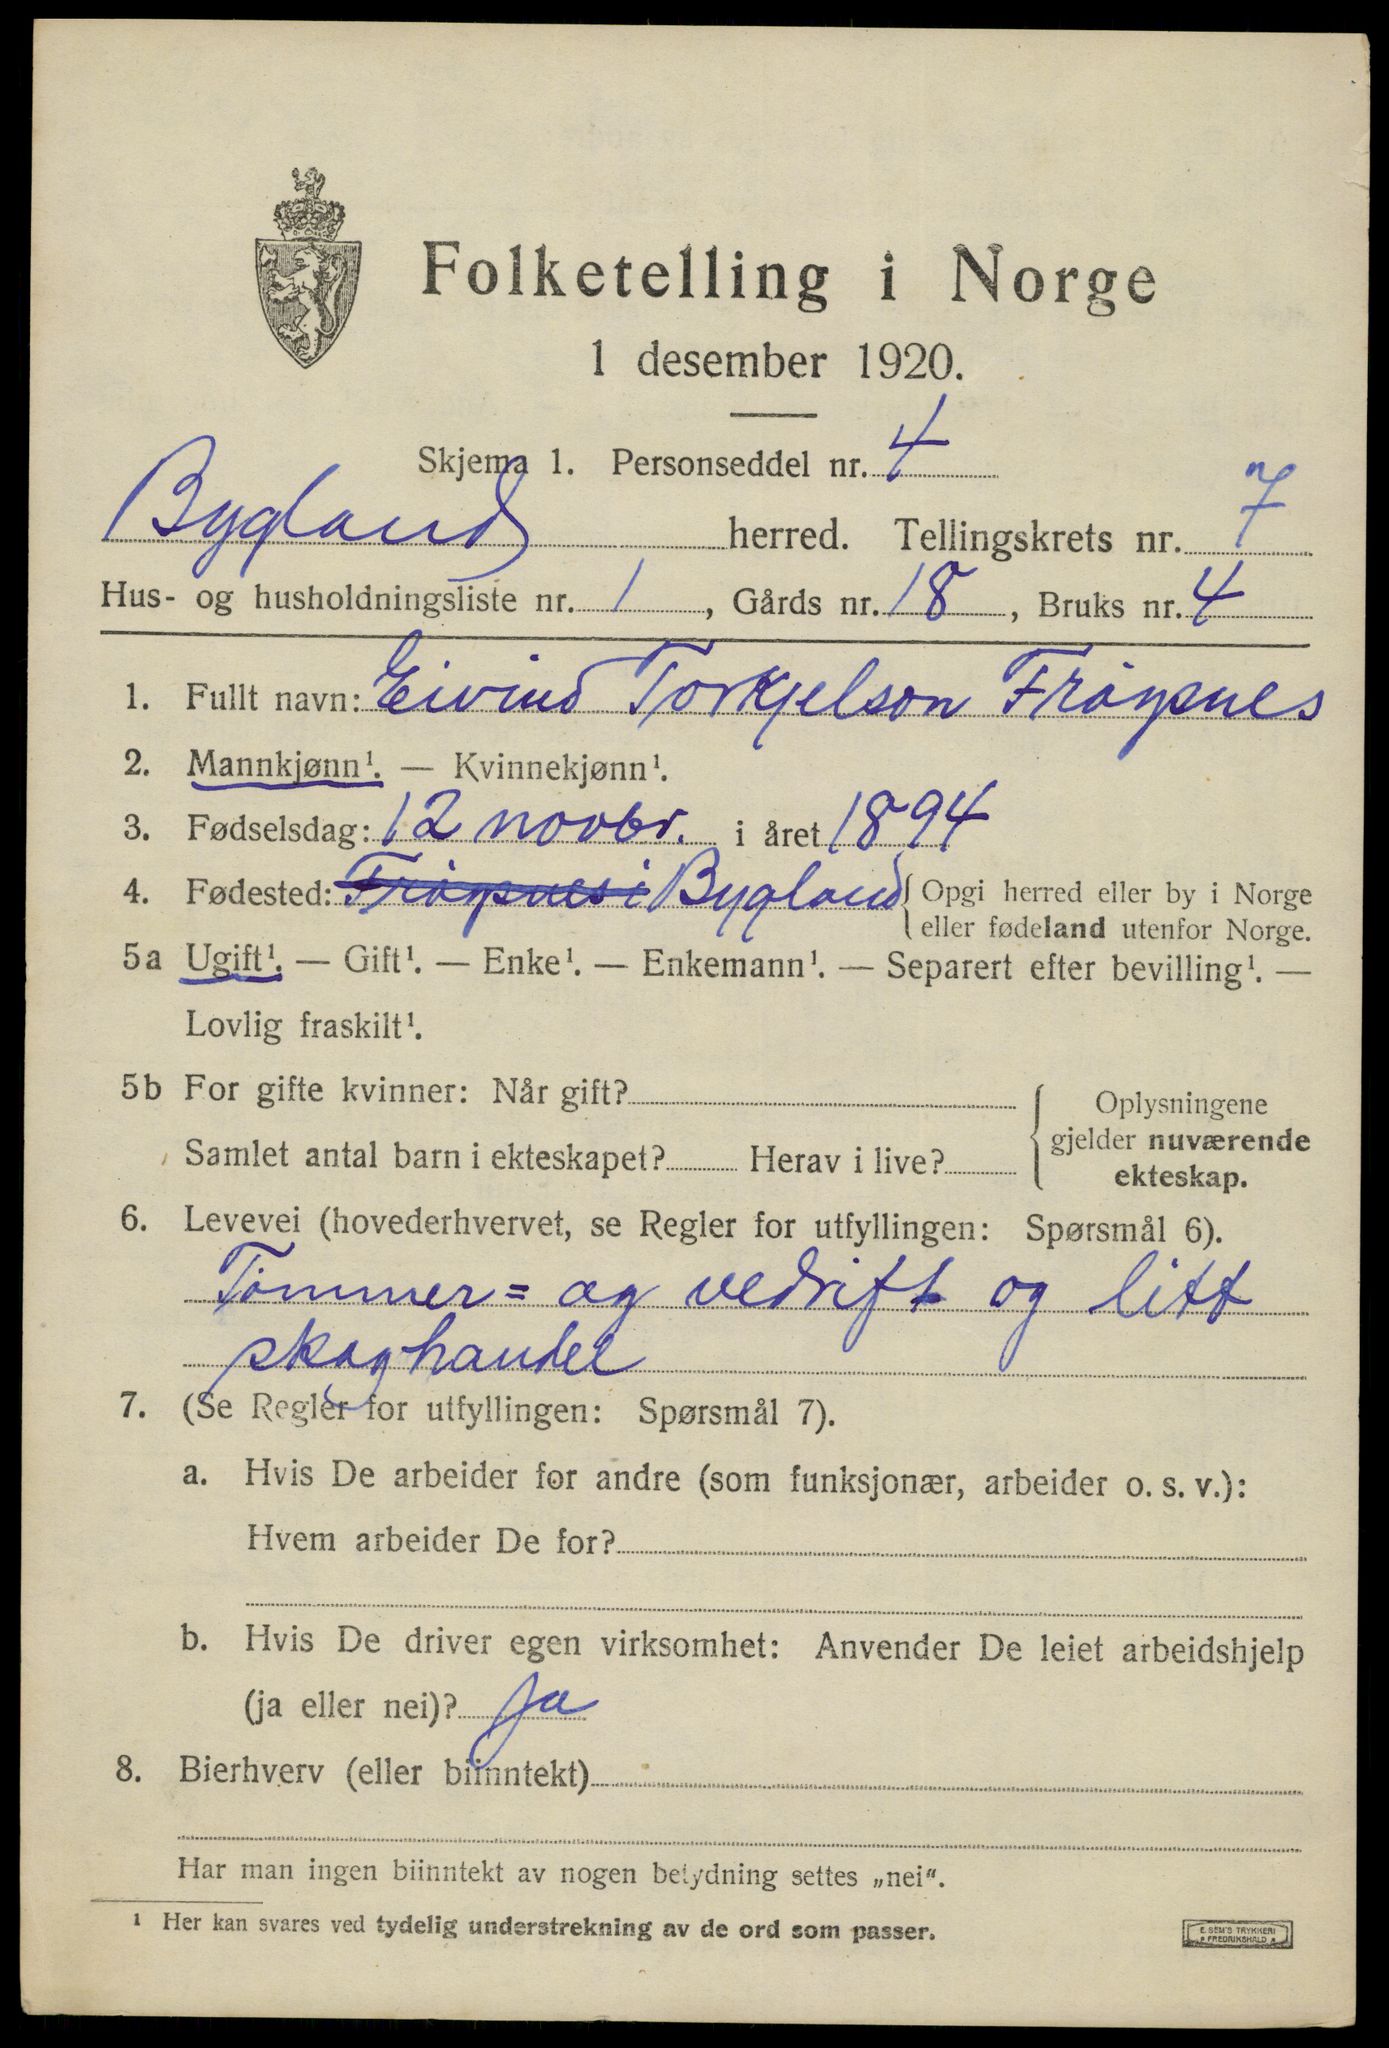 Folketelling i Norge
1 desember 1920.
Skjema 1. Personseddel nr. 4
Bygland herred. Tellingskrets nr. 7
Hus- og husholdningsliste nr. 1, Gårds nr. 18, Bruks nr. 4
1. Fullt navn: Eivind Torkjelson Frøysnes
2. Mannkjønn¹. — Kvinnekjønn¹.
3. Fødselsdag: 12 novbr. i året 1894
4. Fødested: Frøysnes i Bygland { Opgi herred eller by i Norge
eller fødeland utenfor Norge.
5a Ugift¹. — Gift¹. — Enke¹. — Enkemann¹. — Separert efter bevilling¹. —
Lovlig fraskilt¹.
5b For gifte kvinner: Når gift? { Oplysningene
gjelder nuværende
Samlet antal barn i ekteskapet? Herav i live? ekteskap.
6. Levevei (hovederhvervet, se Regler for utfyllingen: Spørsmål 6).
Tømmer= og vedrift og litt
skoghandel
7. (Se Regler for utfyllingen: Spørsmål 7).
a. Hvis De arbeider for andre (som funksjonær, arbeider o. s. v.):
Hvem arbeider De for?
b. Hvis De driver egen virksomhet: Anvender De leiet arbeidshjelp
(ja eller nei)? Ja
8. Bierhverv (eller biinntekt)
Har man ingen biinntekt av nogen betydning settes „nei“.
¹ Her kan svares ved tydelig understrekning av de ord som passer.
E. SEM'S TRYKKERI
FREDRIKSHALD